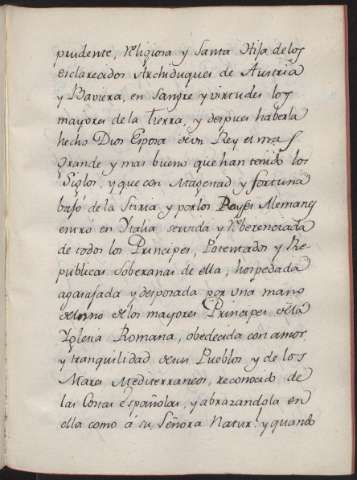 prudente, Religiosa y Santa Hija de los
esclarecidos Archiduques de Austria
y Baviera, en Sangre y virtudes los
mayores de la Tierra, y despues haberla
hecho Dios Esposa de un Rey el mas
grande y mas bueno que han tenido los
Siglos, y que con Magestad y fortuna
bajó de la Stiria y por los Payses Alemans
entró en Ytalia servida y Reberenciada
de todos los Principes, Potentados y Re
publicas Soberanas de ella, hospedada
agasajada y desposada por una mano
de uno de los mayores Principes de la
Yglesia Romana, obedecida con amor
y tranquilidad de sus Pueblos y de los
Mares Mediterraneos, reconocido de
las Costas Españolas, y abrazandola en
ella como á su Señora Natur.l y quando